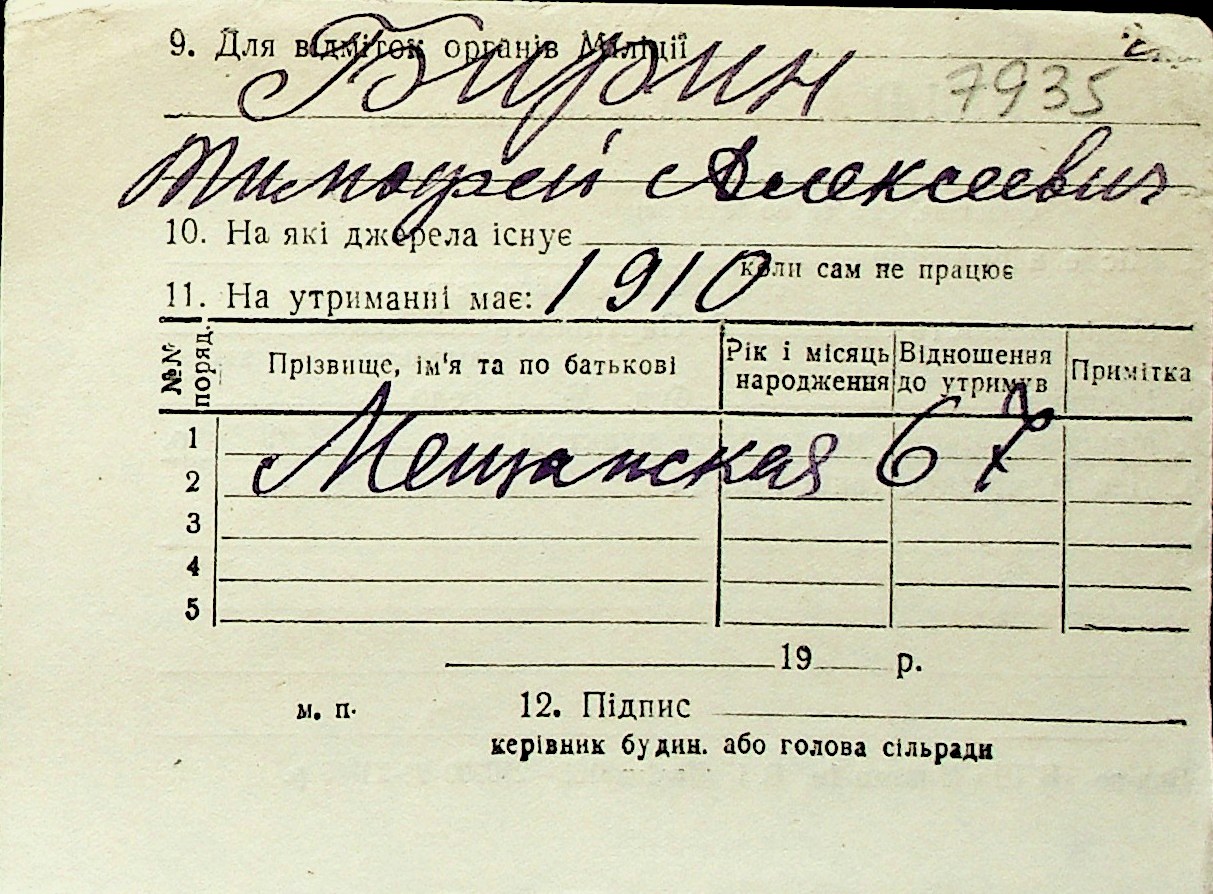 9. Для відміток органів Міліції
Бирин 7935
Тимофей Алексеевич
10. На які джерела існує
коли сам не працює
11. На утриманні має: 1910
№№ поряд. Прізвище, ім'я та по батькові Рік і місяць народження Відношення до утримув Примітка
1
Мещанская 67
2
3
4
5
19 р.
м. п. 12. Підпис
керівник будин. або голова сільради